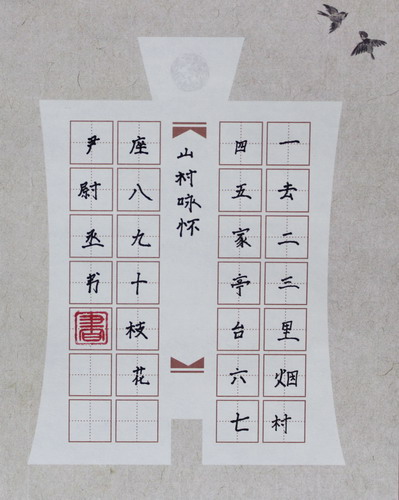 一去二三里烟村
四五家亭台六七
山村咏怀
座八九十枝花
尹尉丞书
書